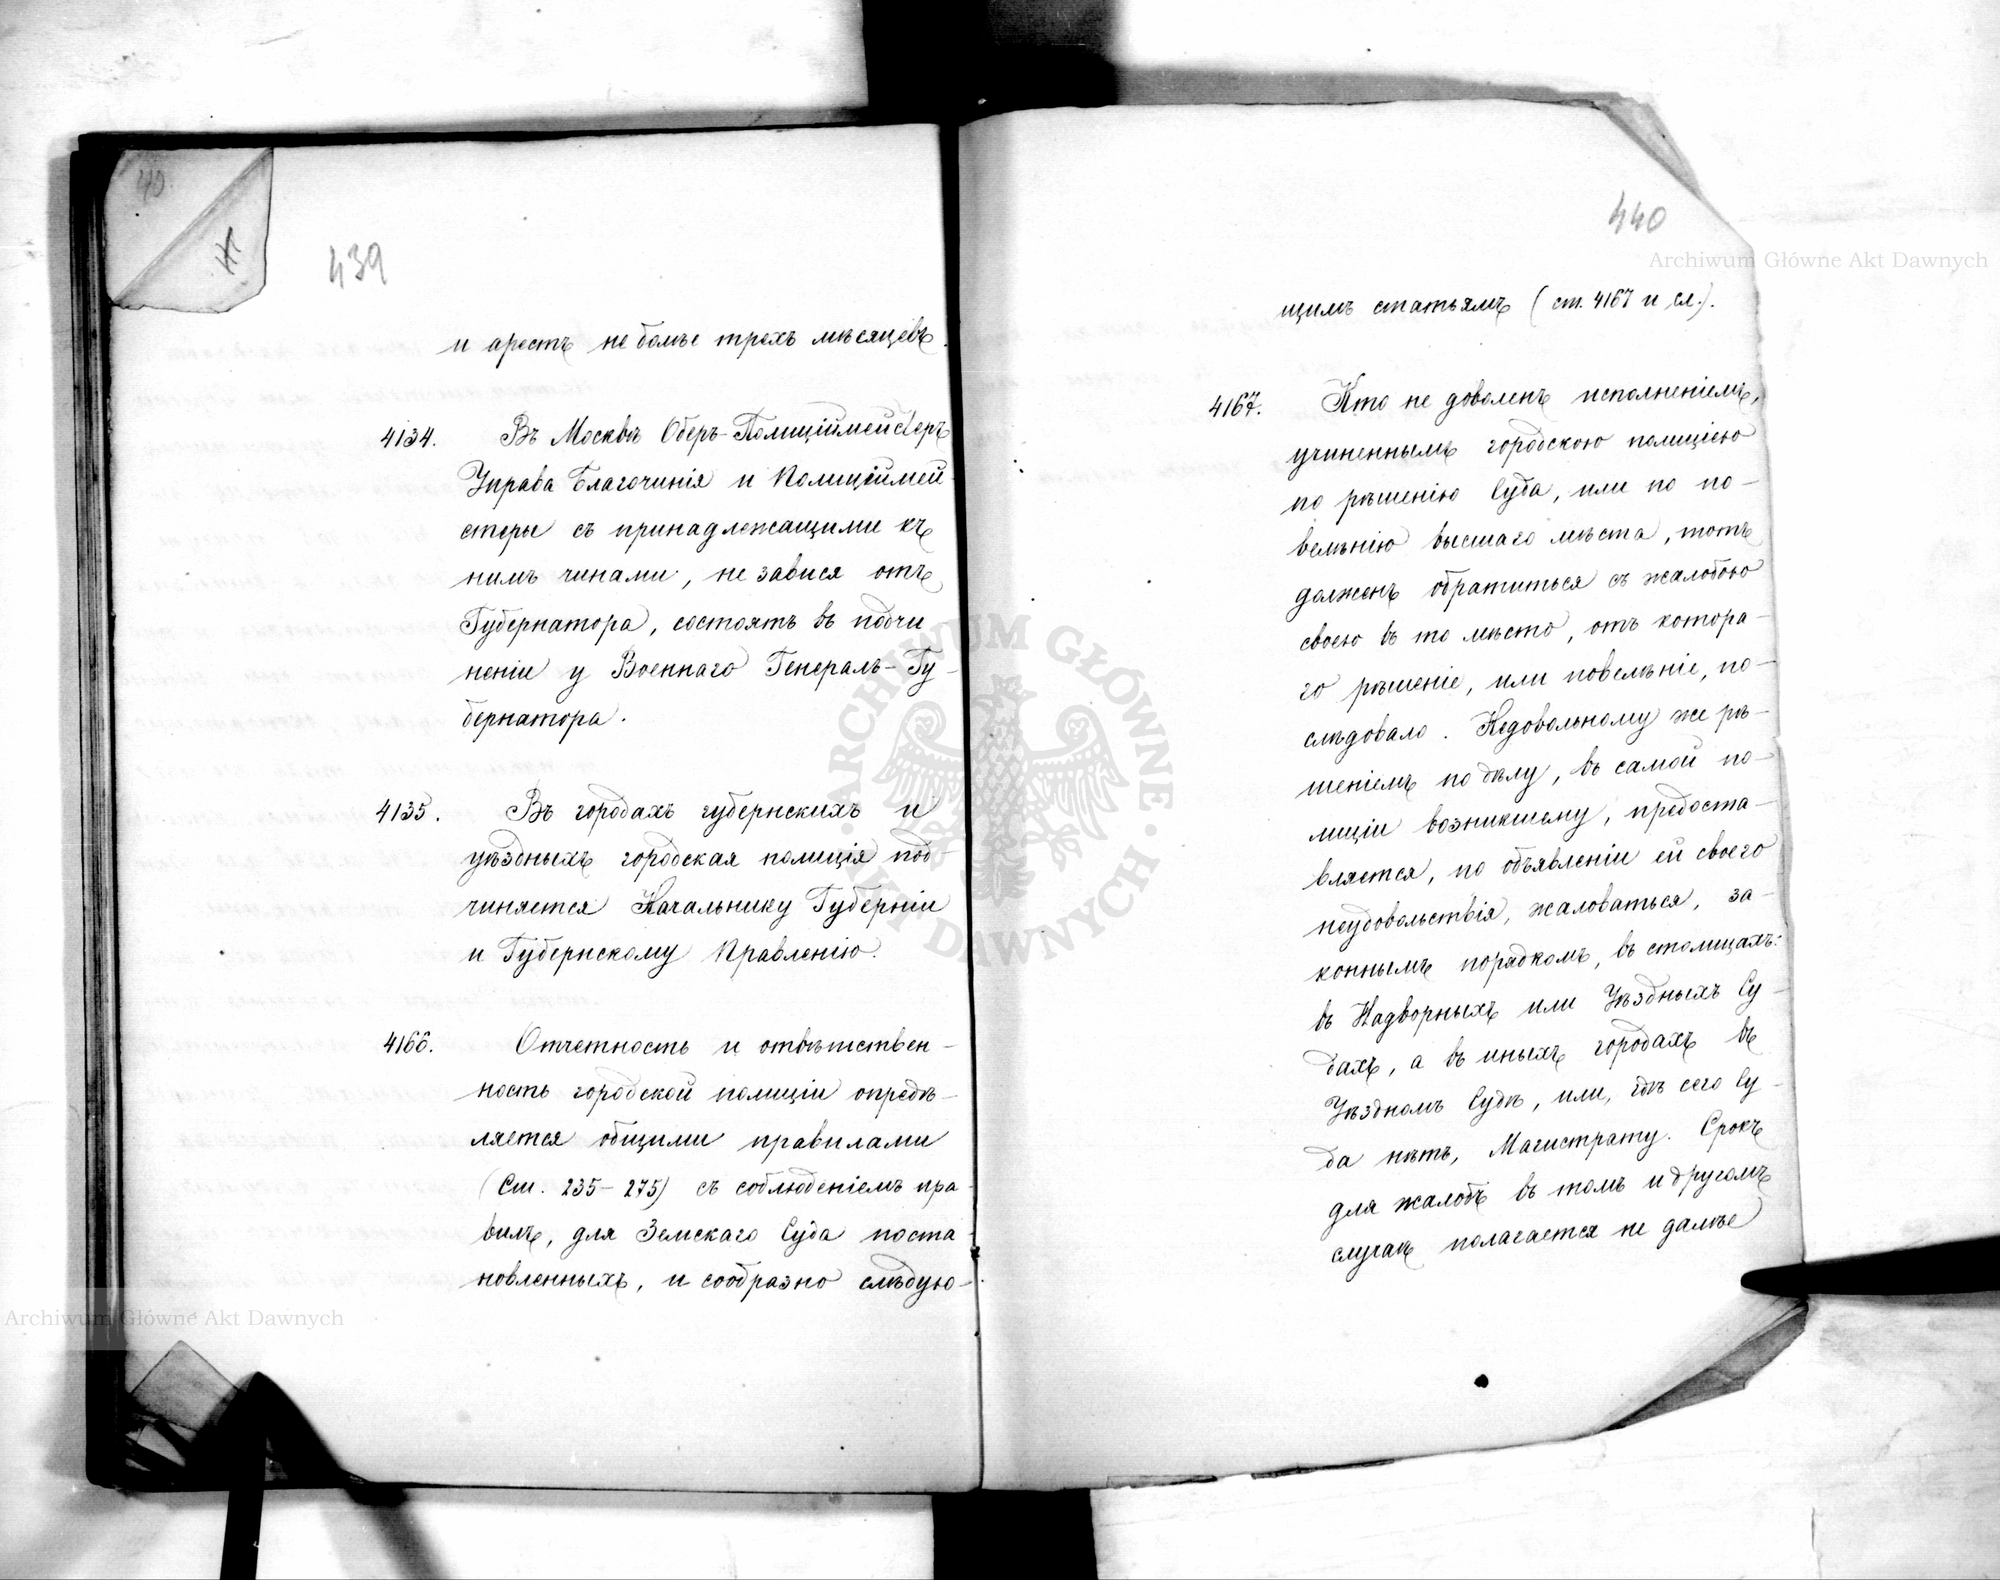 40
439
и арестъ не болѣе трехъ мѣсяцевъ.
4134. Въ Москвѣ Оберъ-Полиціймейстеръ
Управа Благочинія и Полиціймей-
стеры съ принадлежащими къ
нимъ чинами, не завися отъ
Губернатора, состоятъ въ подчи-
неніи у Военнаго Генералъ-Гу-
бернатора.
4135. Въ городахъ губернскихъ и
уѣздныхъ городская полиція под-
чиняется Начальнику Губерніи
и Губернскому Правленію.
4166. Отчетность и отвѣтствен-
ность городской полиціи опредѣ-
ляется общими правилами
(Ст. 235-275) съ соблюденіемъ пра-
вилъ, для Земскаго Суда поста-
новленныхъ, и сообразно слѣдую-
440
щимъ статьямъ (ст. 4167 и сл.).
4167. Кто не доволенъ исполненіемъ,
учиненнымъ городскою полиціею
по рѣшенію Суда, или по по-
велѣнію высшаго мѣста, тотъ
долженъ обратиться съ жалобою
своею въ то мѣсто, отъ котора-
го рѣшеніе, или повелѣніе, по-
слѣдовало. Недовольному же рѣ-
шеніемъ по дѣлу, въ самой по-
лиціи возникшему, предоста-
вляется, по объявленіи ей своего
неудовольствія, жаловаться, за-
коннымъ порядкомъ, въ столицахъ:
въ Надворныхъ или Уѣздныхъ Су-
дахъ, а въ иныхъ городахъ въ
Уѣздномъ Судѣ, или, гдѣ сего Су-
да нѣтъ, Магистрату. Срокъ
для жалобъ въ томъ и другомъ
случаѣ полагается не далѣе
Archiwum Główne Akt Dawnych
ARCHIWUM GŁÓWNE
AKT DAWNYCH
Archiwum Główne Akt Dawnych